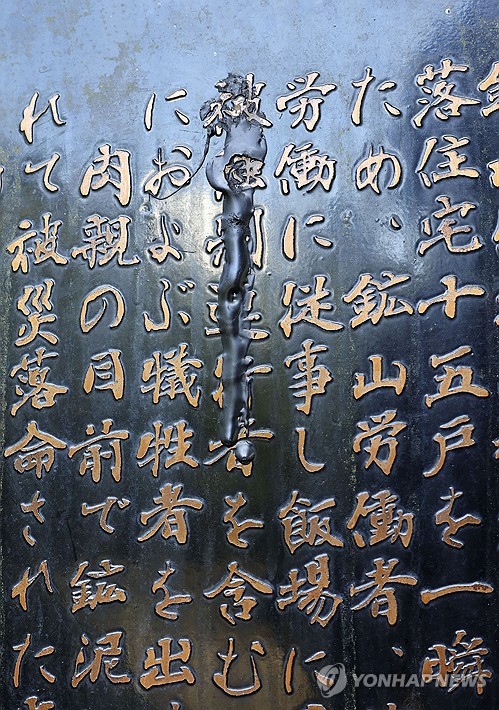 落住宅十五戸を一瞬
ため、鉱山労働者、
労働に従事し飯場に
被制連行者を含む
におよぶ犠牲者を出
肉親の目前で鉱泥
れて被災落命された
YONHAP NEWS